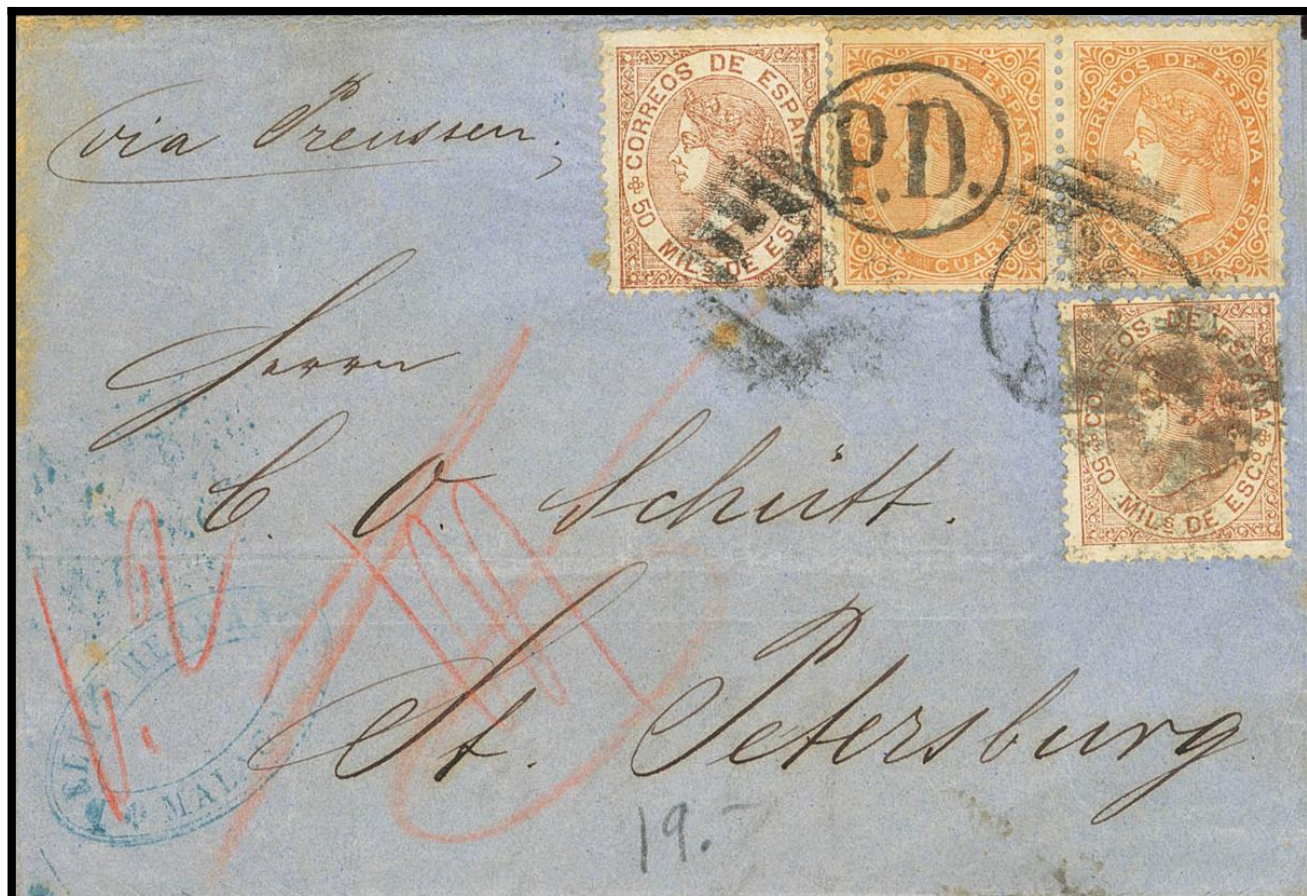 via Preussen.
CORREOS DE ESPAÑA
50 MILs DE ESCo
P.D.
CORREOS DE ESPAÑA
DOCE CUARTOS
CORREOS DE ESPAÑA
DOCE CUARTOS
CORREOS DE ESPAÑA
50 MILs DE ESCo
Herrn
C. O. Schütt.
St. Petersburg
MAL
19.-